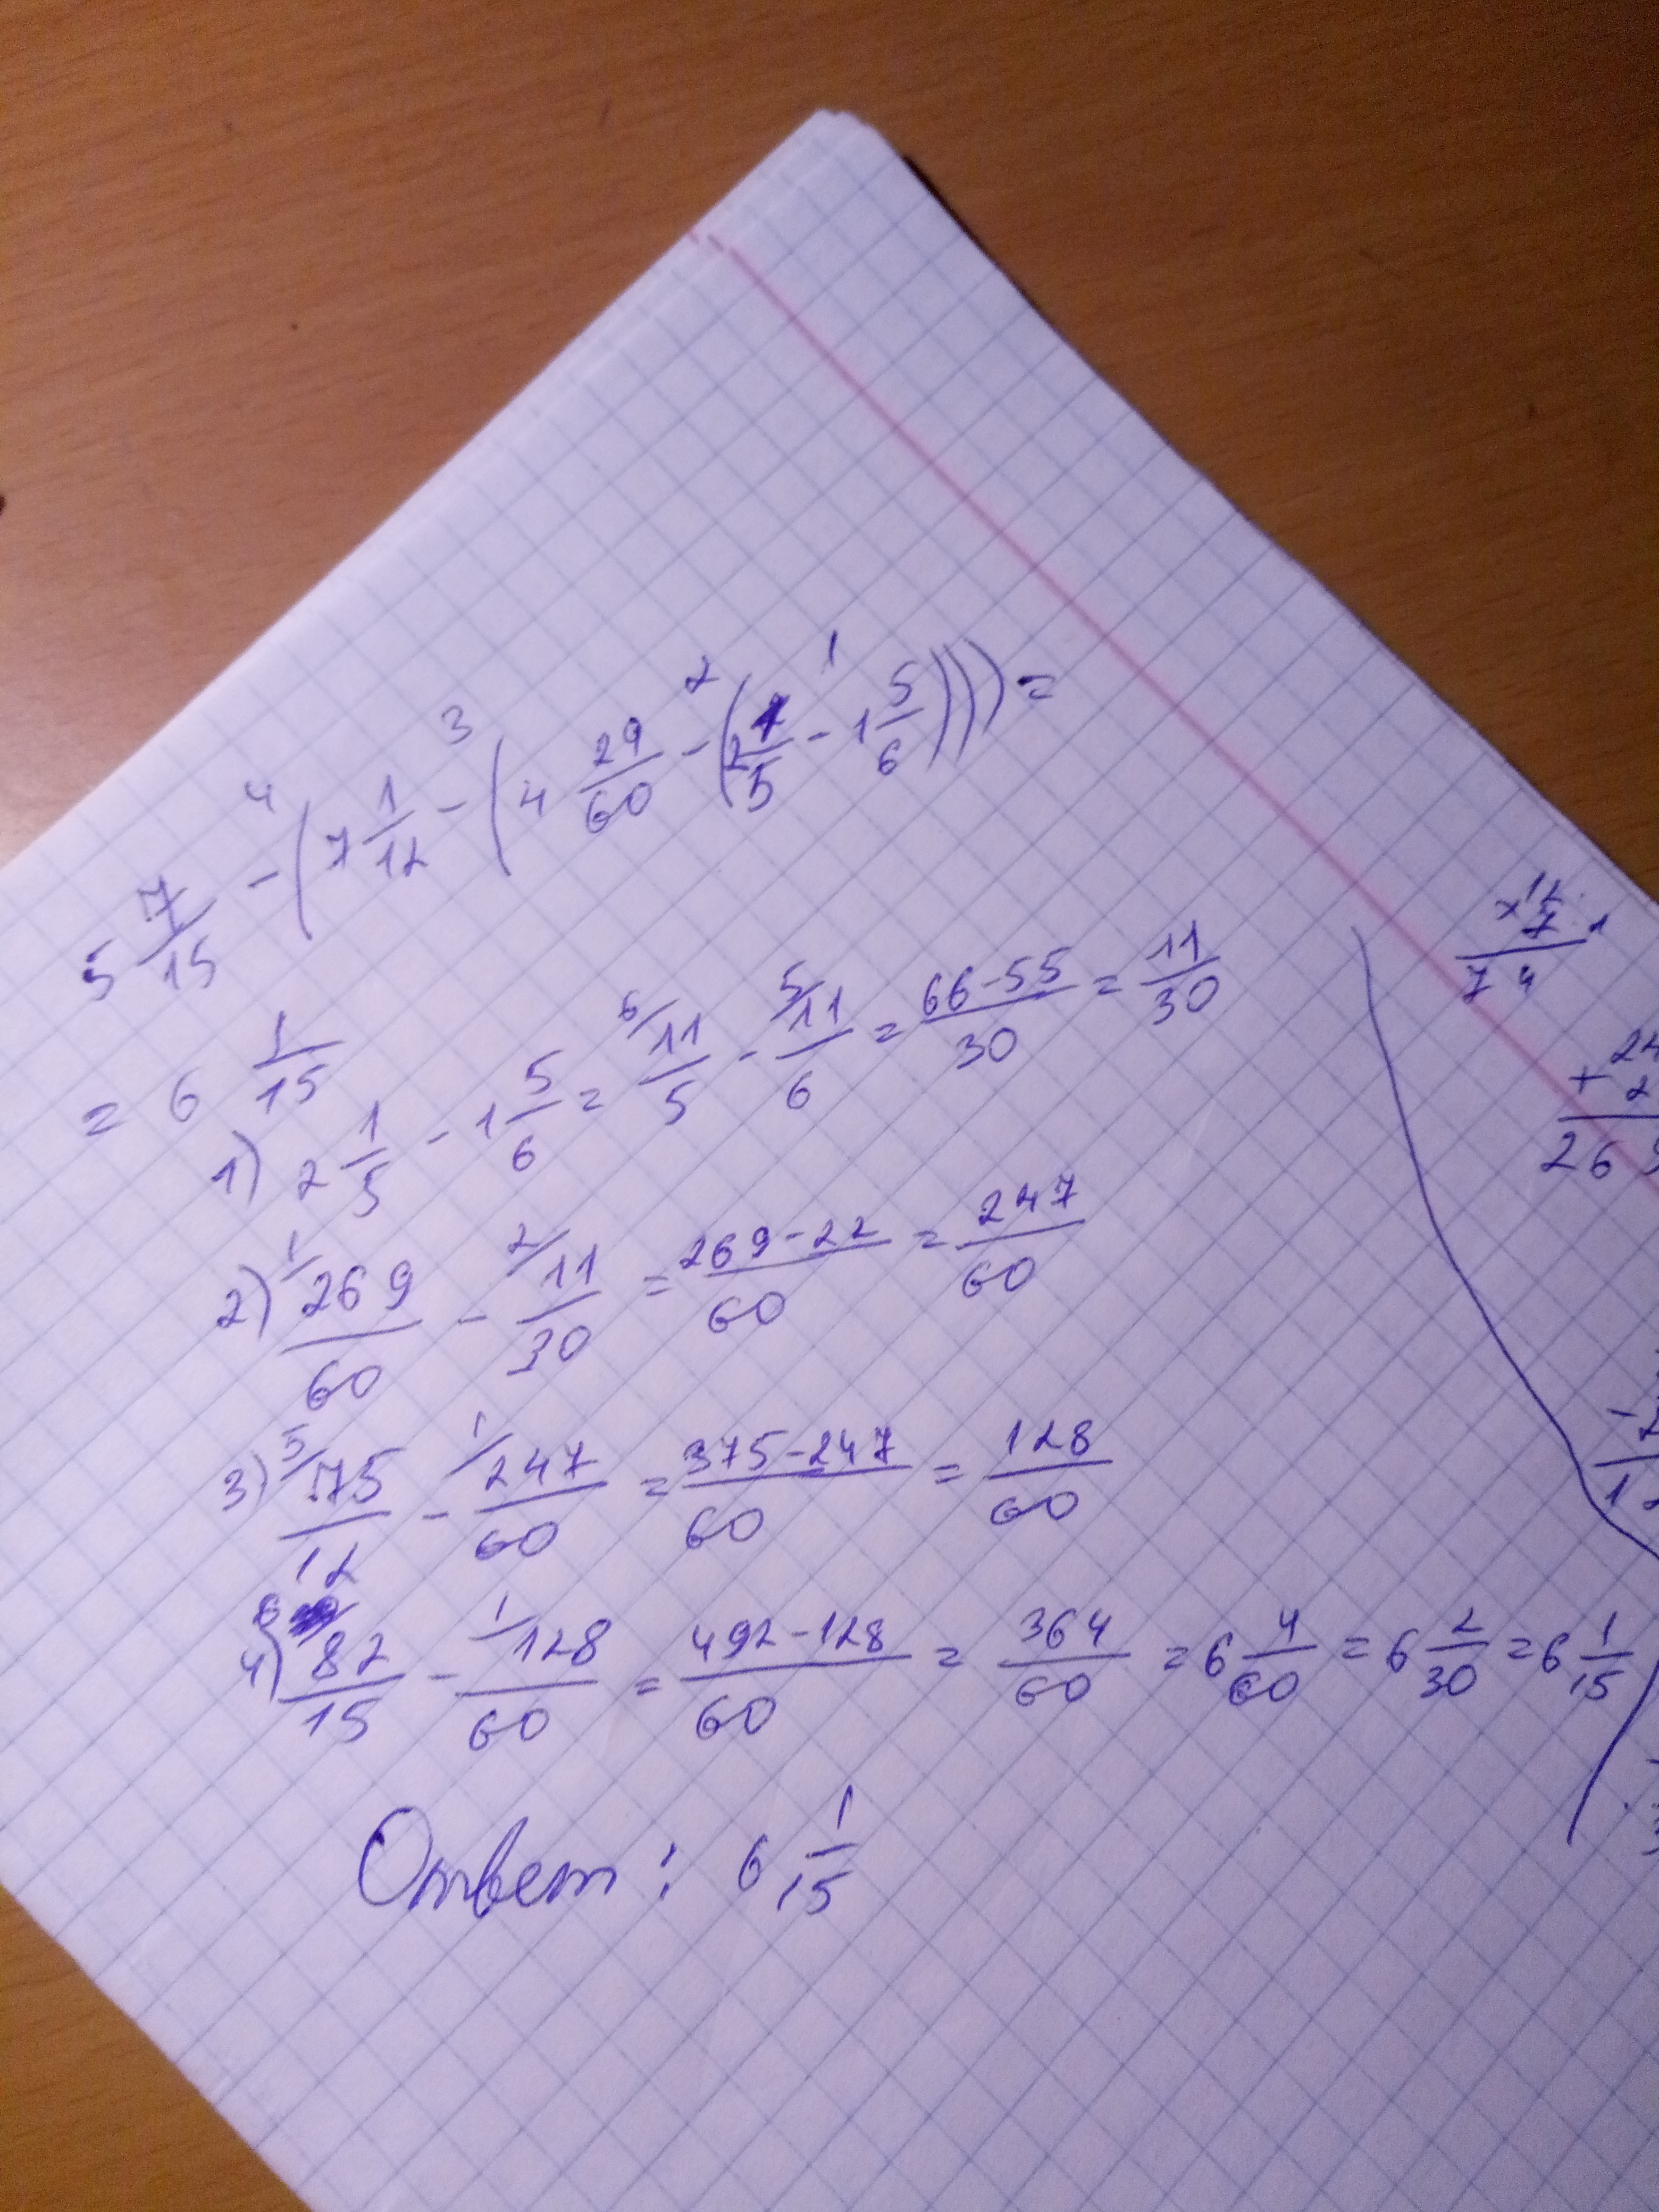 5 7/15 - (7 1/12 - (4 29/60 - (2 1/5 - 1 5/6))) =
4 3 2 1
= 6 1/15
1) 2 1/5 - 1 5/6 = 6/ 11/5 - 5/ 11/6 = 66-55/30 = 11/30
2) 1/ 269/60 - 2/ 11/30 = 269-22/60 = 247/60
3) 5/ 75/12 - 1/ 247/60 = 375-247/60 = 128/60
4) 6/ 82/15 - 1/ 128/60 = 492-128/60 = 364/60 = 6 4/60 = 6 2/30 = 6 1/15
Ответ: 6 1/15
x 12
7
74
+ 24
2
26